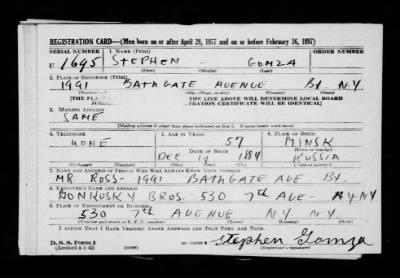 REGISTRATION CARD—(Men born on or after April 28, 1877 and on or before February 16, 1897)
SERIAL NUMBER 1. NAME (Print) ORDER NUMBER
U 1695 STEPHEN GOMZA
(First) (Middle) (Last)
2. PLACE OF RESIDENCE (Print)
1991 BATHGATE AVENUE BX. N.Y
(Number and street) (Town, township, village, or city) (County) (State)
[THE PLACE OF RESIDENCE GIVEN ON THE LINE ABOVE WILL DETERMINE LOCAL BOARD
JURISDICTION; LINE 2 OF REGISTRATION CERTIFICATE WILL BE IDENTICAL]
3. MAILING ADDRESS
SAME
[Mailing address if other than place indicated on line 2. If same insert word same]
4. TELEPHONE 5. AGE IN YEARS 6. PLACE OF BIRTH
NONE 57 MINSK
DATE OF BIRTH (Town or county)
DEC 14 1884 RUSSIA
(Mo.) (Day) (Yr.) (State or country)
7. NAME AND ADDRESS OF PERSON WHO WILL ALWAYS KNOW YOUR ADDRESS
MR ROSS - 1991 BATHGATE AVE BX.
8. EMPLOYER'S NAME AND ADDRESS
BROS. 530 7th AVE - NY NY
9. PLACE OF EMPLOYMENT OR BUSINESS
530 7th AVENUE N.Y. N.Y.
(Number and street or R. F. D. number) (Town) (County) (State)
I AFFIRM THAT I HAVE VERIFIED ABOVE ANSWERS AND THAT THEY ARE TRUE.
D. S. S. Form 1
(Revised 4-1-42) Stephen Gomza